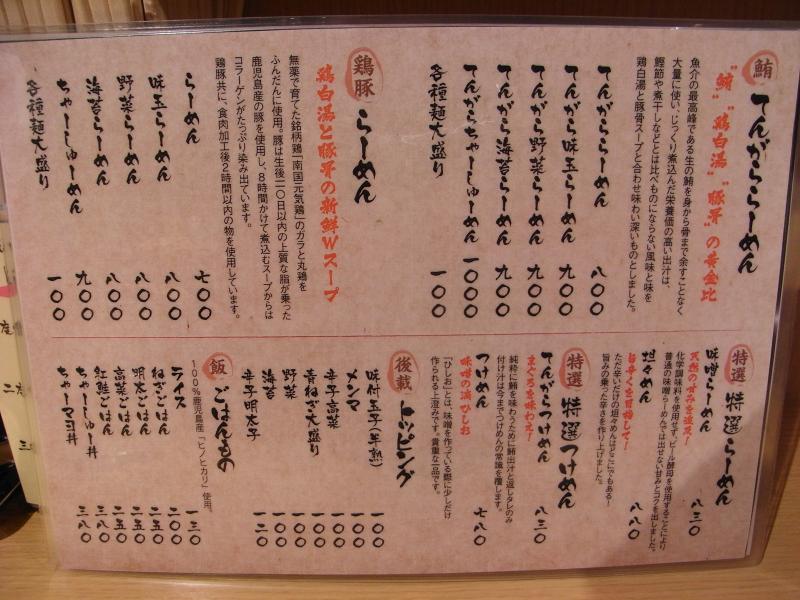 鮪
てんがららーめん
"鮪" "鶏白湯" "豚骨"の黄金比
魚介の最高峰である生の鮪を身から骨まで余すことなく
大量に使い、じっくり煮込んだ栄養価の高い出汁は、
鰹節や煮干しなどとは比べものにならない風味と味を
鶏白湯と豚骨スープと合わせ味わい深いものとしました。
てんがららーめん 八〇〇
てんがら味玉らーめん 九〇〇
てんがら野菜らーめん 九〇〇
てんがら海苔らーめん 九〇〇
てんがらちゃーしゅーめん 一〇〇〇
各種麺大盛り 一〇〇
鶏豚
らーめん
鶏白湯と豚骨の新鮮Wスープ
無薬で育てた銘柄鶏「南国元気鶏」のガラと丸鶏を
ふんだんに使用。豚は生後二一〇日以内の上質な脂が乗った
鹿児島産の豚を使用し、8時間かけて煮込むスープからは
コラーゲンがたっぷり染み出ています。
鶏豚共に、食肉加工後2時間以内の物を使用しています。
らーめん 七〇〇
味玉らーめん 八〇〇
野菜らーめん 八〇〇
海苔らーめん 八〇〇
ちゃーしゅーめん 九〇〇
各種麺大盛り 一〇〇
特選
特選らーめん
味噌らーめん 八三〇
天然の甘みを追求!
化学調味料を使用せず、ビール酵母を使用することにより
普通の味噌らーめんでは出せない甘みとコクを出しました。
坦々めん 八八〇
旨辛くを目指して!
ただ辛いだけの坦々めんはどこにでもある!
旨みの乗った辛さを作り上げました。
特選
特選つけめん
てんがらつけめん 八三〇
まぐろを味わえ!
純粋に鮪を味わうために鮪出汁と返しタレのみ
付け汁は今までつけめんの常識を覆します。
つけめん 七八〇
味噌の滴ひしお
「ひしお」とは、味噌を作っている際に少しだけ
作られる上澄みです。貴重な一品です。
後載
トッピング
味付玉子(半熟) 一〇〇
メンマ 一〇〇
辛子高菜 一〇〇
青ねぎ大盛り 一〇〇
野菜 一〇〇
海苔 一〇〇
辛子明太子 一二〇
飯
ごはんもの
100%鹿児島産「ヒノヒカリ」使用。
ライス 一三〇
ねぎごはん 二〇〇
明太ごはん 二五〇
高菜ごはん 二五〇
紅鮭ごはん 二五〇
ちゃーしゅー丼 三八〇
ちゃーマヨ丼 三八〇